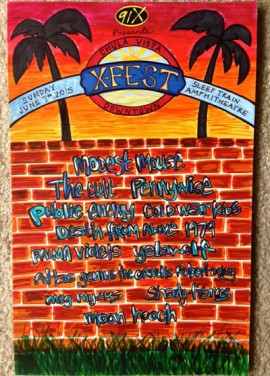 91X
Presents
CHULA VISTA
XFEST
DOWNTOWN
SUNDAY
JUNE 7TH 2015
SLEEP TRAIN
AMPHITHEATRE
Modest Mouse
The Cult Pennywise
Public Enemy Cold War Kids
Death From Above 1979
Palma Violets Yelawolf
Atlas Genius The Orwells Robert Delong
Meg Myers Shady
Moon Hooch